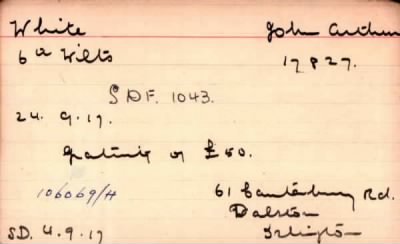 White John Arthur
6th Wilts 17827.
SDF. 1043.
24. 9. 17.
gratuity of £50.
106069/H 61 Canterbury Rd.
Dalston
Islington
SD. 4.9.17